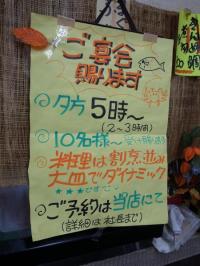 ご宴会
賜ります
夕方5時〜
(2〜3時間)
10名様〜
料理は割烹並み
大皿でダイナミック
★★★ですで
ご予約は当店にて
(詳細は社長まで)